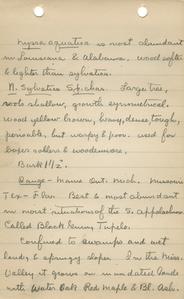 Nyssa aquatica is most abundant
in Louisiana & Alabama. wood softer
& lighter than sylvatica.
N. Sylvatica Sp. char. Large tree,
roots shallow, growth symmetrical.
wood yellow brown, heavy, dense, tough,
perishable, but warps & poor. used for
boxes rollers & woodenware.
Bark 1 1/2".
Range - Maine Ont. Mich. Missouri
Tex - Flor. Best & most abundant
in moist situations of the S. Appalachian
Called Black Gum, Tupelo.
Confined to swamps and wet
lands, & springy slopes. In the Miss.
Valley it grows on inundated lands
with Water Oak Red Maple & Bl. Ash.